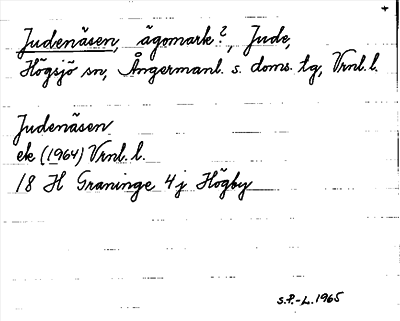 Judenäsen, ägomark?, Jude,
Högsjö sn, Ångermanl. s. doms. tg, Vrnl. l.
Judenäsen
ek (1964) Vrnl. l.
18 H Graninge 4 j Högby
S.P.-L. 1965